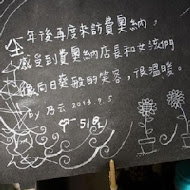 今年後再度來訪費奧納，
感受到費奧納店長和女孩們
像向日葵般的笑容，很溫暖。
by 乃云 2013.9.5